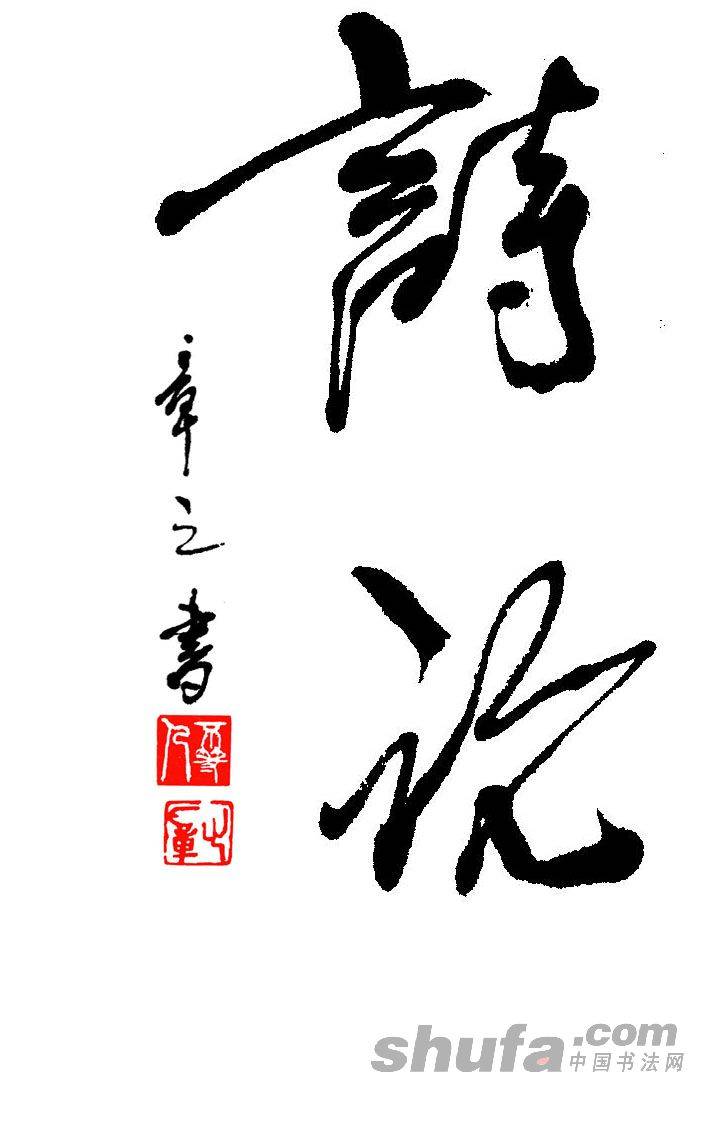 詩论
章之書
shufa.com
中国书法网